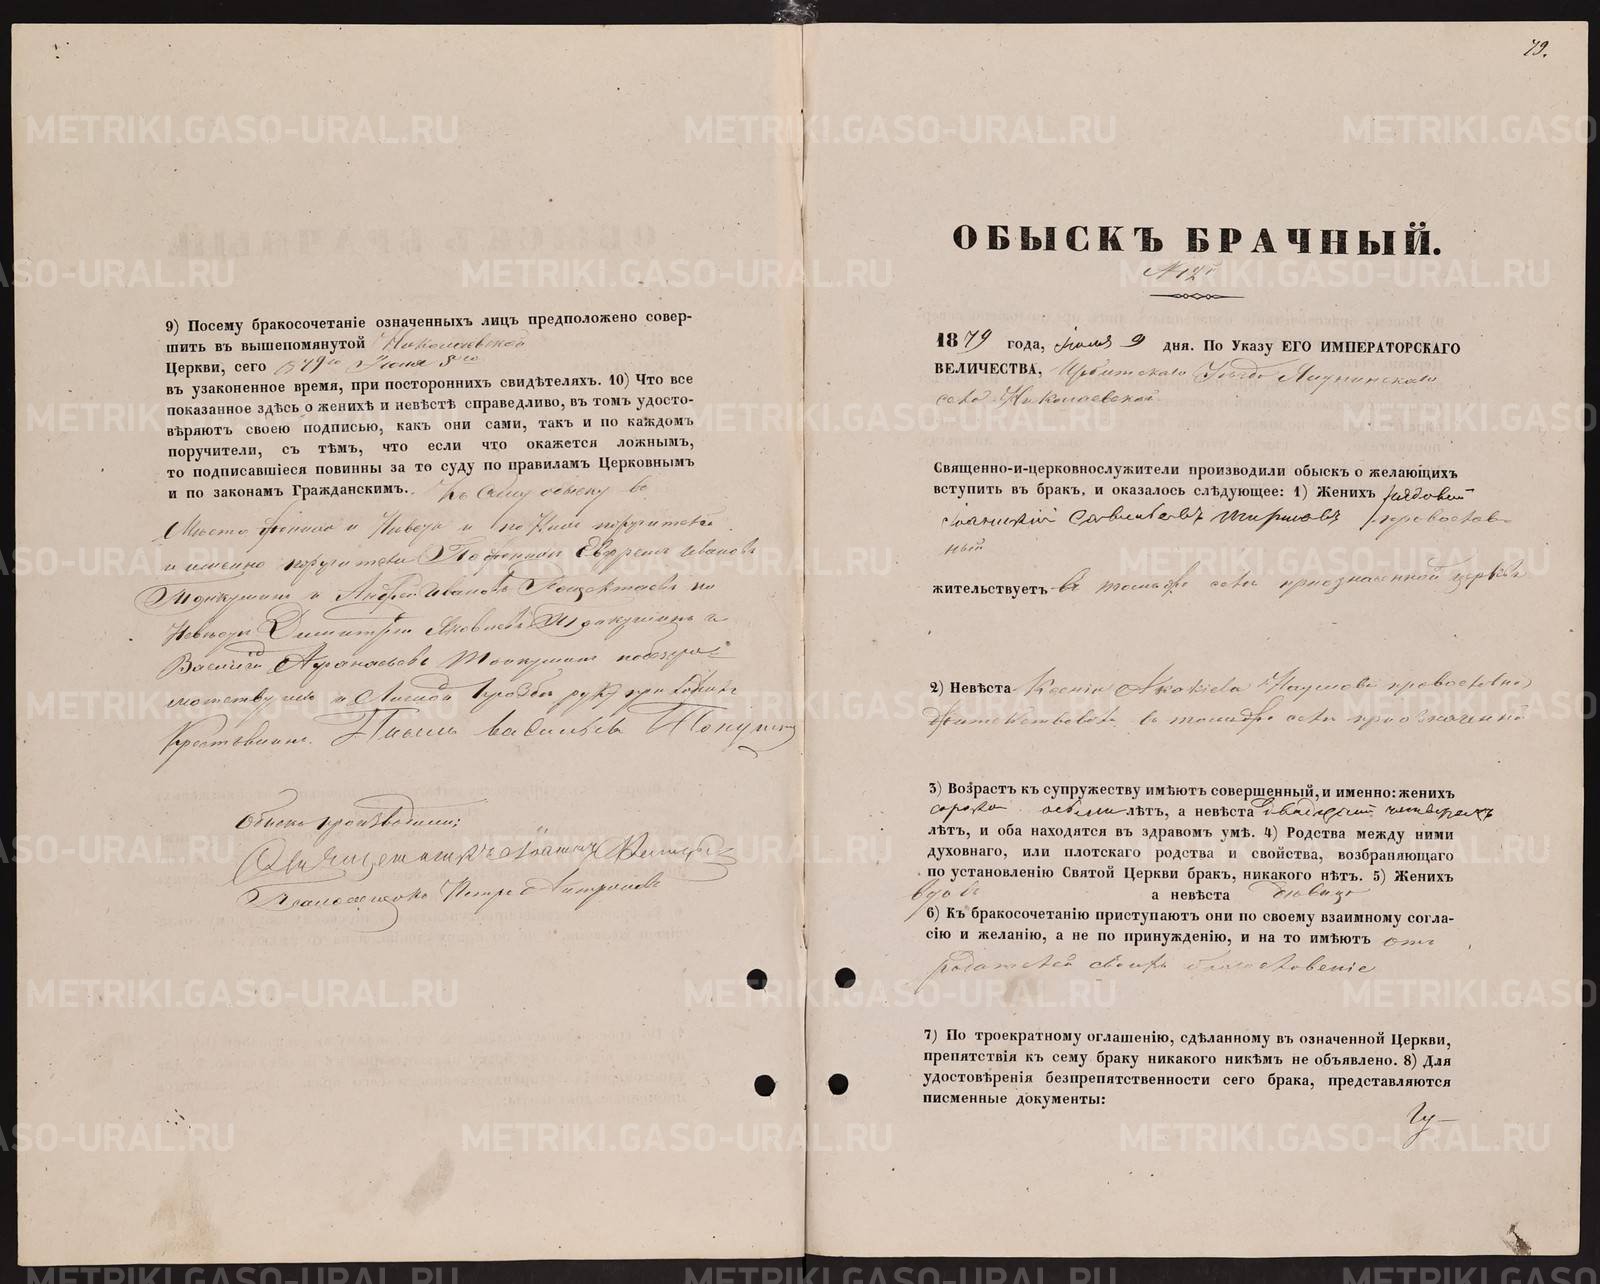 9) Посему бракосочетаніе означенныхъ лицъ предположено совер-
шить въ вышепомянутой Николаевской
Церкви, сего 1879го Іюня 8го
въ узаконенное время, при постороннихъ свидѣтеляхъ. 10) Что все
показанное здѣсь о женихѣ и невѣстѣ справедливо, въ томъ удосто-
вѣряютъ своею подписью, какъ они сами, такъ и по каждомъ
поручители, съ тѣмъ, что если что окажется ложнымъ,
то подписавшіеся повинны за то суду по правиламъ Церковнымъ
и по законамъ Гражданскимъ. Къ сему обыску въ
Мѣсто жениха и Невѣсты и по Нимъ поручителей
и именно поручители По женихѣ Ефремъ Ивановъ
и Андрей Ивановъ по
Невѣстѣ Димитрій Яковлевъ и
Василій Афанасьевъ
и личной прозьбѣ руку приложилъ
Крестьянинъ Васильевъ
Обыскъ производили:
Священникъ Іоаннъ
Псаломщикъ Петръ
79.
ОБЫСКЪ БРАЧНЫЙ.
№ 12
1879 года, Іюля 9 дня. По Указу ЕГО ИМПЕРАТОРСКАГО
ВЕЛИЧЕСТВА, Ирбитскаго Уѣзда
села Николаевской
Священно-и-церковнослужители производили обыскъ о желающихъ
вступить въ бракъ, и оказалось слѣдующее: 1) Женихъ рядовой
Савельевъ православ-
ный
жительствуетъ въ томъ же селѣ при означенной церкви
2) Невѣста Ксенія Акакіева Наумова православная
жительствовала въ томъ же селѣ при означенной
3) Возрастъ къ супружеству имѣютъ совершенный, и именно: женихъ
сорока восьми лѣтъ, а невѣста двадцати четырехъ
лѣтъ, и оба находятся въ здравомъ умѣ. 4) Родства между ними
духовнаго, или плотскаго родства и свойства, возбраняющаго
по установленію Святой Церкви бракъ, никакого нѣтъ. 5) Женихъ
вдовъ а невѣста дѣвица
6) Къ бракосочетанію приступаютъ они по своему взаимному согла-
сію и желанію, а не по принужденію, и на то имѣютъ отъ
родителей своихъ благословеніе
7) По троекратному оглашенію, сдѣланному въ означенной Церкви,
препятствія къ сему браку никакого никѣмъ не объявлено. 8) Для
удостовѣренія безпрепятственности сего брака, представляются
писменные документы:
METRIKI.GASO-URAL.RU